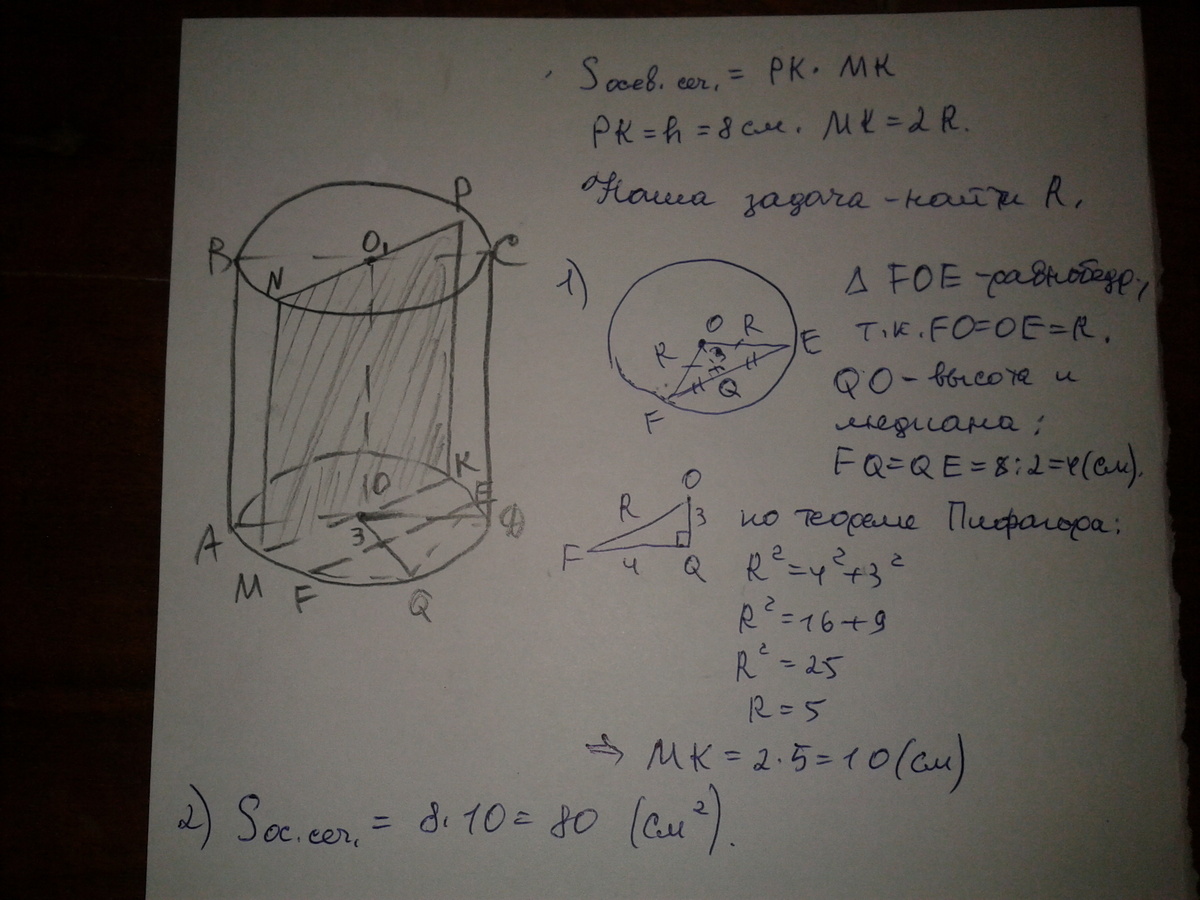 Sосев. сеч. = PK · MK
PK = h = 8 см. MK = 2R.
Наша задача – найти R.
B N O₁ P C
A M F Q D E K O 3
1)
O R E R 3 Q F
Δ FOE – равнобедр.,
т.к. FO = OE = R.
QO – высота и
медиана;
FQ = QE = 8 : 2 = 4 (см).
O R 3 F 4 Q
по теореме Пифагора:
R² = 4² + 3²
R² = 16 + 9
R² = 25
R = 5
⇒ MK = 2 · 5 = 10 (см)
2) Sос. сеч. = 8 · 10 = 80 (см²).